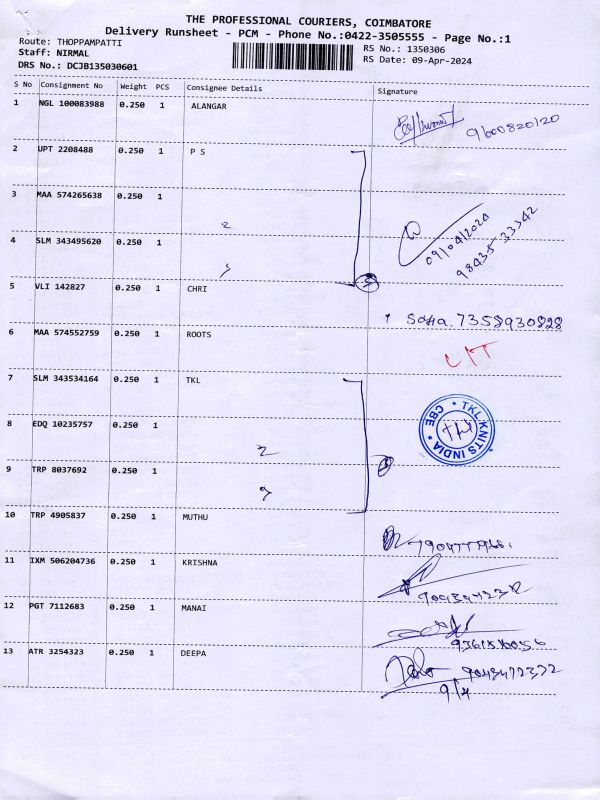 THE PROFESSIONAL COURIERS, COIMBATORE
Delivery Runsheet - PCM - Phone No.:0422-3505555 - Page No.:1
Route: THOPPAMPATTI
RS No.: 1350306
Staff: NIRMAL
RS Date: 09-Apr-2024
DRS No.: DCJB135030601
S No Consignment No Weight PCS Consignee Details Signature
1 NGL 100083988 0.250 1 ALANGAR
9600820120
2 UPT 2208488 0.250 1 P S
3 MAA 574265638 0.250 1
2
09/04/2024
98435 33342
4 SLM 343495620 0.250 1
5 VLI 142827 0.250 1 CHRI
7358930828
6 MAA 574552759 0.250 1 ROOTS
7 SLM 343534164 0.250 1 TKL
TKL KNITS INDIA * CBE *
8 EDQ 10235757 0.250 1
2
9 TRP 8037692 0.250 1
10 TRP 4905837 0.250 1 MUTHU
11 IXM 506204736 0.250 1 KRISHNA
12 PGT 7112683 0.250 1 MANAI
13 ATR 3254323 0.250 1 DEEPA
9043472372
9/4